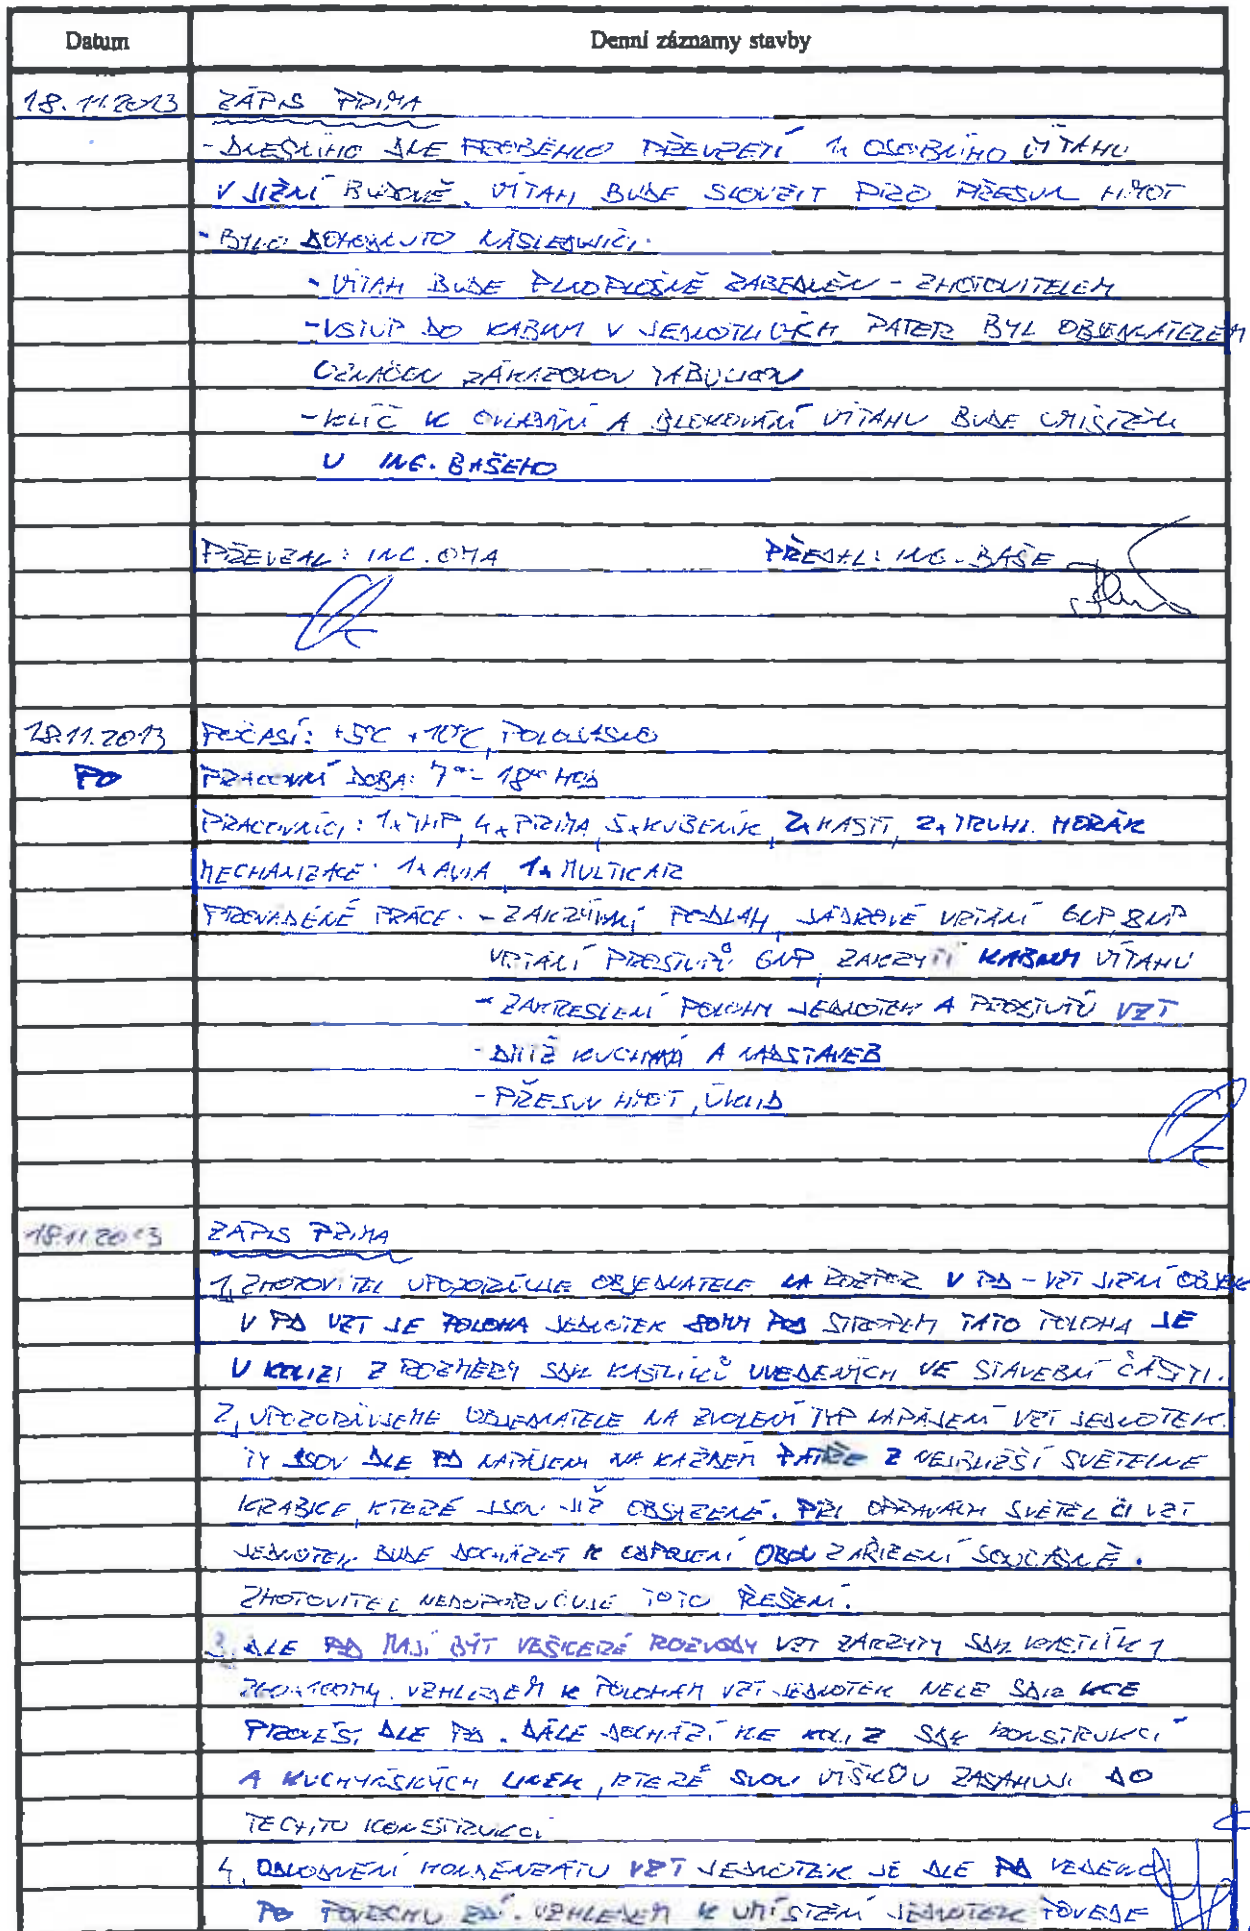 Datum
Denní záznamy stavby
18.11.2013 ZÁPIS PRIMA
- DNEŠNÍHO DNE PROBĚHLO PŘEVZETÍ 1x OSOBNÍHO VÝTAHU
V JIŽNÍ BUDOVĚ, VÝTAH BUDE SLOUŽIT PRO PŘESUN HMOT
- BYLO DOHODNUTO NÁSLEDUJÍCÍ:
- VÝTAH BUDE PLNOPLOŠNĚ ZABEDNĚN - ZHOTOVITELEM
- VSTUP DO KABINY V JEDNOTLIVÝCH PATER BYL OBJEDNATELEM
OZNAČEN ZÁKAZOVOU TABULKOU
- KLÍČ K OVLÁDÁNÍ A BLOKOVÁNÍ VÝTAHU BUDE UMÍSTĚN
U ING. BAŠEHO
PŘEVZAL: ING. OMA PŘEDAL: ING. BAŠE
18.11.2013 POČASÍ: +5°C +10°C, POLOJASNO
PO PRACOVNÍ DOBA: 7°° - 18°° HOD
PRACOVNÍCI: 1x THP, 4x PRIMA, 5x KUBENÍK, 2x HASTI, 2x TRUHL. HORÁK
MECHANIZACE: 1x AVIA, 1x MULTICAR
PROVÁDĚNÉ PRÁCE: - ZAKRÝVÁNÍ PODLAH, JÁDROVÉ VRTÁNÍ 6NP, 8NP
VRTÁNÍ PROSTUPŮ 6NP, ZAKRYTÍ KABINY VÝTAHU
- ZAKRESLENÍ POLOHY JEDNOTEK A PROSTUPŮ VZT
- DMTŽ KUCHYNÍ A NADSTAVEB
- PŘESUN HMOT, ÚKLID
18.11.2013 ZÁPIS PRIMA
1, ZHOTOVITEL UPOZORŇUJE OBJEDNATELE NA ROZPOR V PD - VZT JIŽNÍ OBJEKT
V PD VZT JE POLOHA JEDNOTEK POD STROPEM TATO POLOHA JE
V KOLIZI Z ROZMĚRY SDK KASTLÍKŮ UVEDENÝCH VE STAVEBNÍ ČÁSTI.
2, UPOZORŇUJEME OBJEDNATELE NA ZVOLENÝ TYP NAPÁJENÍ VZT JEDNOTEK.
TY JSOU DLE PD NAPÁJENY NA KAŽDÉM PATŘE Z NEJBLIŽŠÍ SVĚTELNÉ
KRABICE, KTERÉ JSOU JIŽ OBSAZENÉ. PŘI OPRAVÁCH SVĚTEL ČI VZT
JEDNOTEK BUDE DOCHÁZET K ODPOJENÍ OBOU ZAŘÍZENÍ SOUČASNĚ.
ZHOTOVITEL NEDOPORUČUJE TOTO ŘEŠENÍ.
3, DLE PD MAJÍ BÝT VEŠKERÉ ROZVODY VZT ZAKRYTY SDK KASTLÍKY
VZHLEDEM K POLOHÁM VZT JEDNOTEK NELZE SDK KCE
PROVÉST DLE PD. DÁLE DOCHÁZÍ KE KOLIZI SDK KONSTRUKCÍ
A KUCHYŇSKÝCH LINEK, KTERÉ SVOU VÝŠKOU ZASAHUJÍ DO
TĚCHTO KONSTRUKCÍ
4, ODVODNĚNÍ KONDENZÁTU VZT JEDNOTEK JE DLE PD VEDENO
PO POVRCHU ZDÍ. VZHLEDEM K UMÍSTĚNÍ JEDNOTEK POVEDE